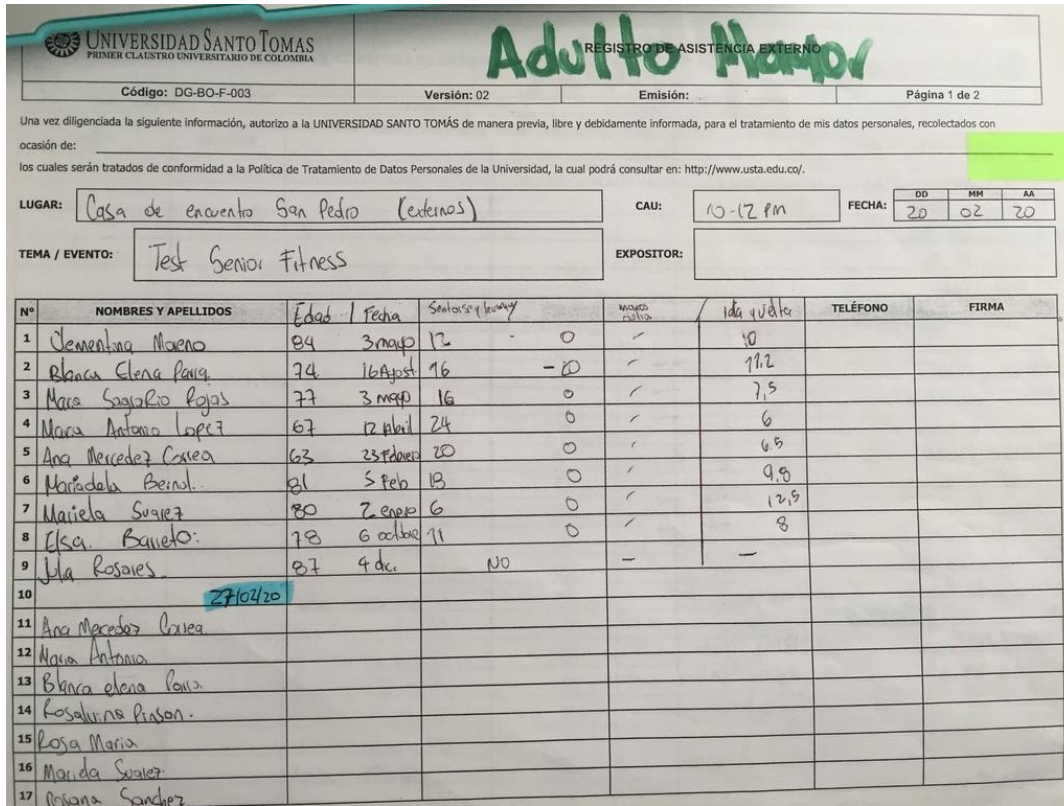 UNIVERSIDAD SANTO TOMAS
PRIMER CLAUSTRO UNIVERSITARIO DE COLOMBIA
REGISTRO DE ASISTENCIA EXTERNO
Adulto Mayor
Código: DG-BO-F-003 Versión: 02 Emisión: Página 1 de 2
Una vez diligenciada la siguiente información, autorizo a la UNIVERSIDAD SANTO TOMÁS de manera previa, libre y debidamente informada, para el tratamiento de mis datos personales, recolectados con
ocasión de:
los cuales serán tratados de conformidad a la Política de Tratamiento de Datos Personales de la Universidad, la cual podrá consultar en: http://www.usta.edu.co/.
LUGAR: Casa de encuentro San Pedro (externos) CAU: 10-12 PM FECHA: DD MM AA
20 02 20
TEMA / EVENTO: Test Senior Fitness EXPOSITOR:
N° NOMBRES Y APELLIDOS Edad / Fecha Sentarse y ida y vuelta TELÉFONO FIRMA
1 Clementina Moreno 84 3 mayo 12 0 10
2 Blanca Elena Parra. 74 16 Agost 16 - 0 11.2
3 Maria Sagrario Rojas 77 3 mayo 16 0 7,5
4 Maria Antonia Lopez 67 12 Abril 24 0 6
5 Ana Mercedez Correa 63 23 Febrero 20 0 6.5
6 Bernal. 81 5 Feb 18 0 9,8
7 Mariela Suarez 80 2 enero 6 0 12,5
8 Elsa. Barreto: 78 6 octubre 11 0 8
9 Rosares. 87 4 dic. NO — —
10 27/02/20
11 Ana Mercedez Correa
12 Maria Antonia
13 Blanca elena Parra.
14 Rosalvina Pinson.
15 Rosa Maria
16 Mariela Suarez
17 Rosana Sanchez